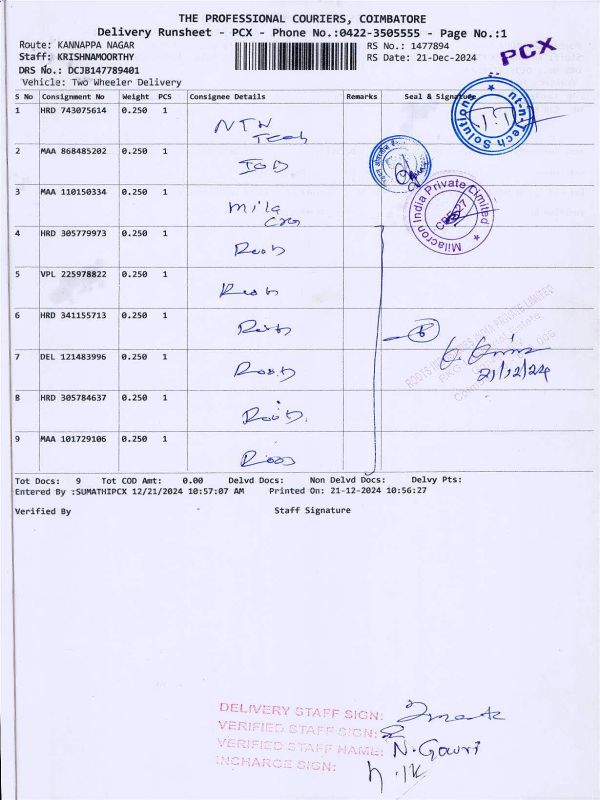 THE PROFESSIONAL COURIERS, COIMBATORE
Delivery Runsheet - PCX - Phone No.:0422-3505555 - Page No.:1
Route: KANNAPPA NAGAR
RS No.: 1477894
PCX
Staff: KRISHNAMOORTHY
RS Date: 21-Dec-2024
DRS No.: DCJB147789401
Vehicle: Two Wheeler Delivery
S No Consignment No Weight PCS Consignee Details Remarks Seal & Signature
1 HRD 743075614 0.250 1 NTN Tech
nt-n-Tech Solutions
2 MAA 868485202 0.250 1 IOB
3 MAA 110150334 0.250 1 Mila Cron
Milacron India Private Limited
4 HRD 305779973 0.250 1 Roots
5 VPL 225978822 0.250 1 Roots
6 HRD 341155713 0.250 1 Roots
6
ROOTS INDUSTRIES INDIA PRIVATE LIMITED
21/12/24
7 DEL 121483996 0.250 1 Roots
8 HRD 305784637 0.250 1 Roots
9 MAA 101729106 0.250 1 Roots
Tot Docs: 9 Tot COD Amt: 0.00 Delvd Docs: Non Delvd Docs: Delvy Pts:
Entered By :SUMATHIPCX 12/21/2024 10:57:07 AM Printed On: 21-12-2024 10:56:27
Verified By Staff Signature
DELIVERY STAFF SIGN:
VERIFIED STAFF SIGN:
VERIFIED STAFF NAME: N.Gowri
INCHARGE SIGN: